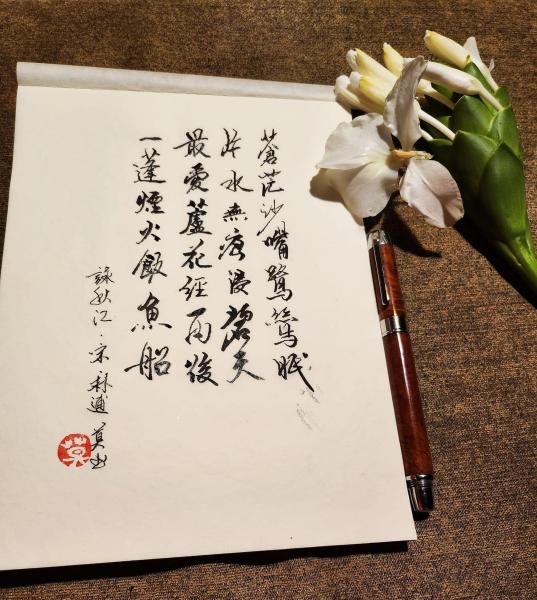 蒼茫沙嘴鷺鷥眠
片水無痕浸碧天
最愛蘆花經雨後
一蓬煙火飯魚船
詠秋江·宋 林逋 莫书
莫